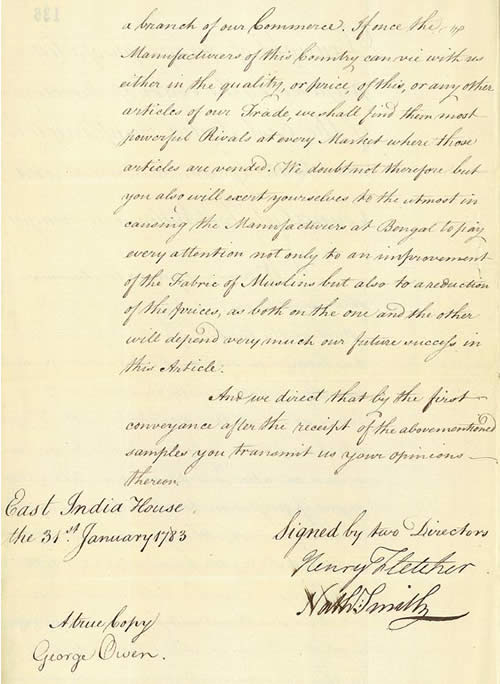 a branch of our Commerce. If once the
Manufacturers of this Country can vie with us
either in the quality, or price, of this, or any other
articles of our Trade, we shall find them most
powerful Rivals at every Market where those
articles are vended. We doubt not therefore but
you also will exert yourselves to the utmost in
causing the Manufacturers at Bengal to pay
every attention not only to an improvement
of the Fabric of Muslins but also to a reduction
of the prices, as both on the one and the other
will depend very much our future success in
this Article.
And we direct that by the first
conveyance after the receipt of the abovementioned
samples you transmit us your opinions
thereon.
East India House
the 31st January 1783
Signed by two Directors
Henry Fletcher
Nathl Smith
A true Copy
George Owen.